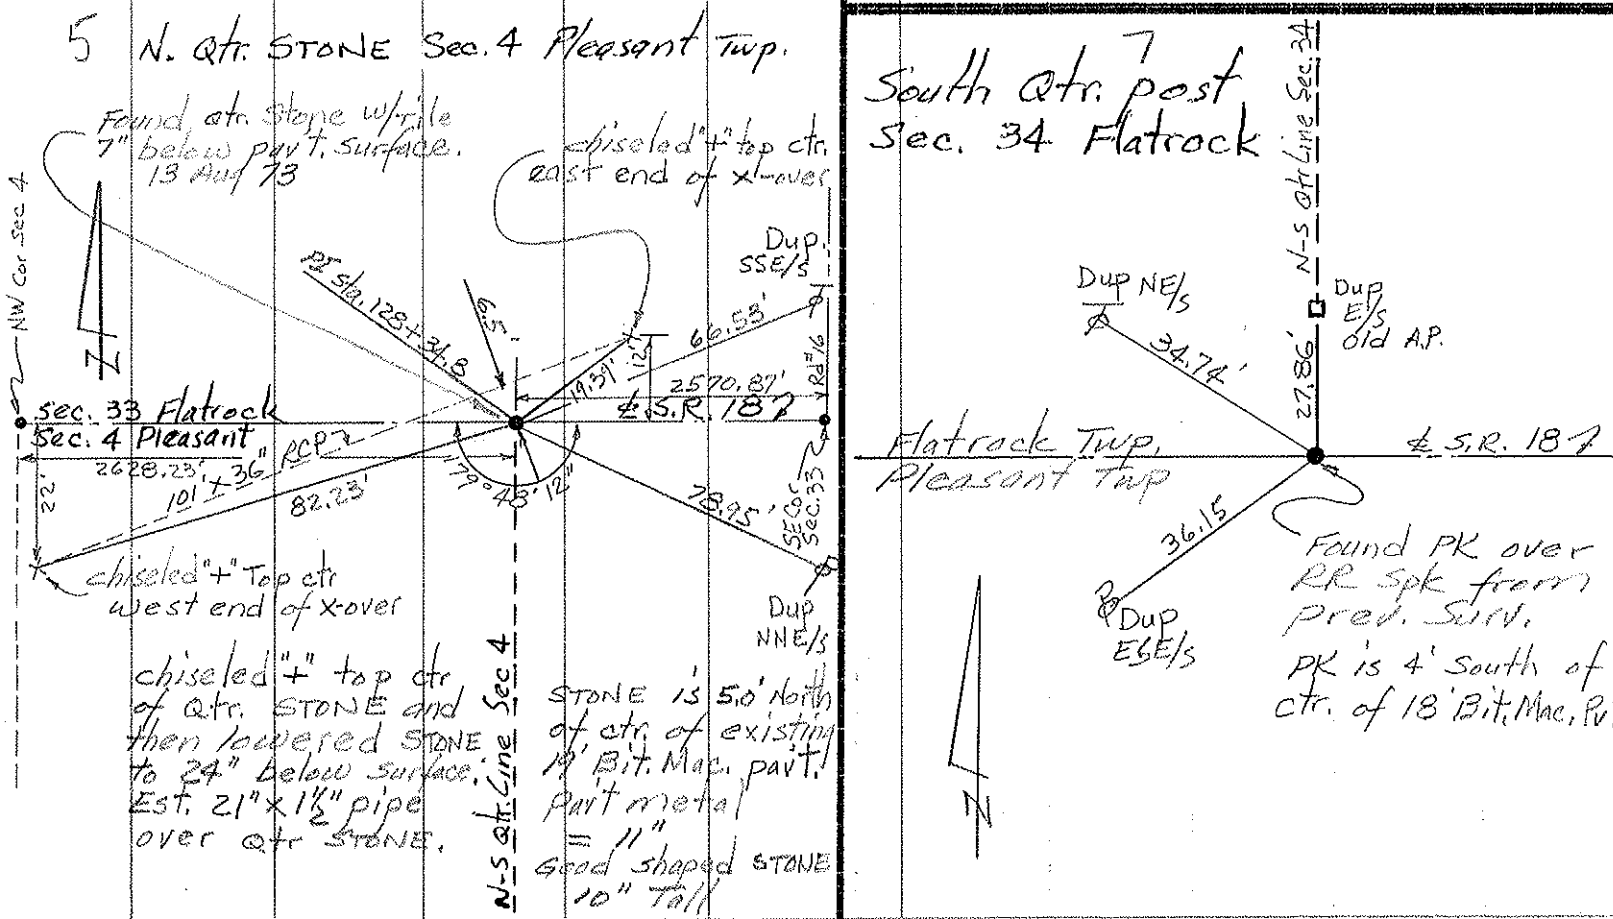 5 N. Qtr. STONE Sec. 4 Pleasant Twp.
Found qtr. Stone w/rile
7" below pav't. surface.
13 Aug 73
chiseled "+" top ctr.
east end of x-over
NW Cor Sec 4
N
PI sta. 128+34.8
6.5'
Dup.
SSE/s
66.53'
19.39'
12'
2570.87'
Rd #16
℄ S.R. 18
Sec. 33 Flatrock
Sec. 4 Pleasant
2628.23'
101' ± 36" RCP
22'
82.23'
179° 48' 12"
78.95'
SE Cor
Sec. 33
chiseled "+" Top ctr
west end of x-over
Dup
NNE/s
chiseled "+" top ctr
of Qtr. STONE and
then lowered STONE
to 24" below surface.
Est. 21" x 1½" pipe
over Qtr STONE.
N-S Qtr. Line Sec 4
STONE is 5.0' North
of ctr. of existing
19' Bit. Mac. pav't.
Pav't metal
= 11"
Good shaped STONE
10" Tall
7
South Qtr. post
Sec. 34 Flatrock
N-S Qtr Line Sec. 34
Dup NE/s
34.74'
27.86'
Dup
E/s
old A.P.
Flatrock Twp.
Pleasant Twp
℄ S.R. 18
36.15
Dup
EbE/s
Found PK over
RR Spk from
prev. Surv.
PK is 4' South of
ctr. of 18' Bit. Mac. Pv.
N